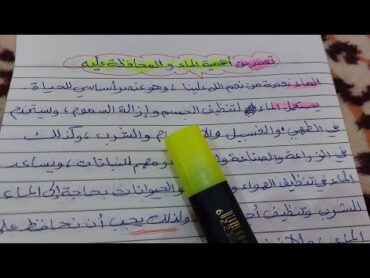 تعبير عن أهمية الماء و المحافظة عليه
الماء نعمة من نعم الله علينا، وهو عنصر أساسي للحياة.
يستعمل الماء لتنظيف الجسم وإزالة السموم، ويستخدم
في الطهي والغسيل والشرب، وكذلك
في الزراعة والصناعة ومهم للنباتات، ويساعد
الماء في تنظيف الهواء والحيوانات بحاجة إلى الماء
الشرب وتنظيف ولذلك يجب أن نحافظ على
الماء